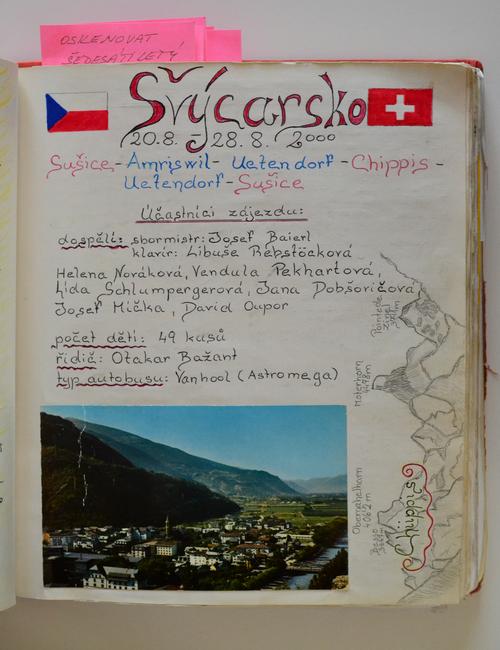 OSKENOVAT
ŠEDESÁTÍ LETÝ
Švýcarsko
20.8. - 28.8. 2000
Sušice - Amriswil - Uetendorf - Chippis -
Uetendorf - Sušice
Účastníci zájezdu:
dospělí: sbormistr: Josef Baierl
klavír: Libuše Rébstöcková
Helena Nováková, Vendula Pekhartová,
Lída Schlumpergerová, Jana Dobšovičová,
Josef Mička, David Oupor
počet dětí: 49 kusů
řidič: Otakar Bažant
typ autobusu: Vanhool (Astromega)
Pointe de
zinal
Materhorn
4478m
Obergabelhorn
4062m
Besso